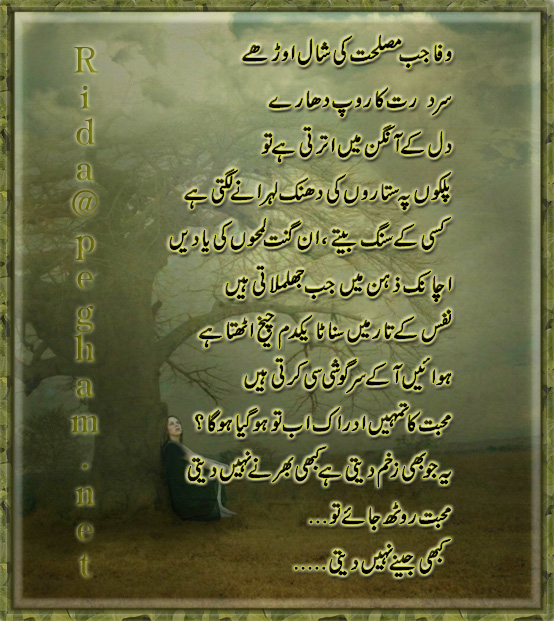 وفا جب مصلحت کی شال اوڑھے
سرد رت کا روپ دھارے
دل کے آنگن میں اترتی ہے تو
پلکوں پہ ستاروں کی دھنک لہرانے لگتی ہے
کسی کے سنگ بیتے ، ان گنت لمحوں کی یادیں
اچانک ذہن میں جب جھلملاتی ہیں
نفس کے تار میں سناٹا یکدم چیخ اٹھتا ہے
ہوائیں آ کے سرگوشی سی کرتی ہیں
محبت کا تمہیں ادراک اب تو ہو گیا ہو گا ؟
یہ جو بھی زخم دیتی ہے کبھی بھرنے نہیں دیتی
محبت روٹھ جائے تو...
کبھی جینے نہیں دیتی.....
Rida@pegham.net